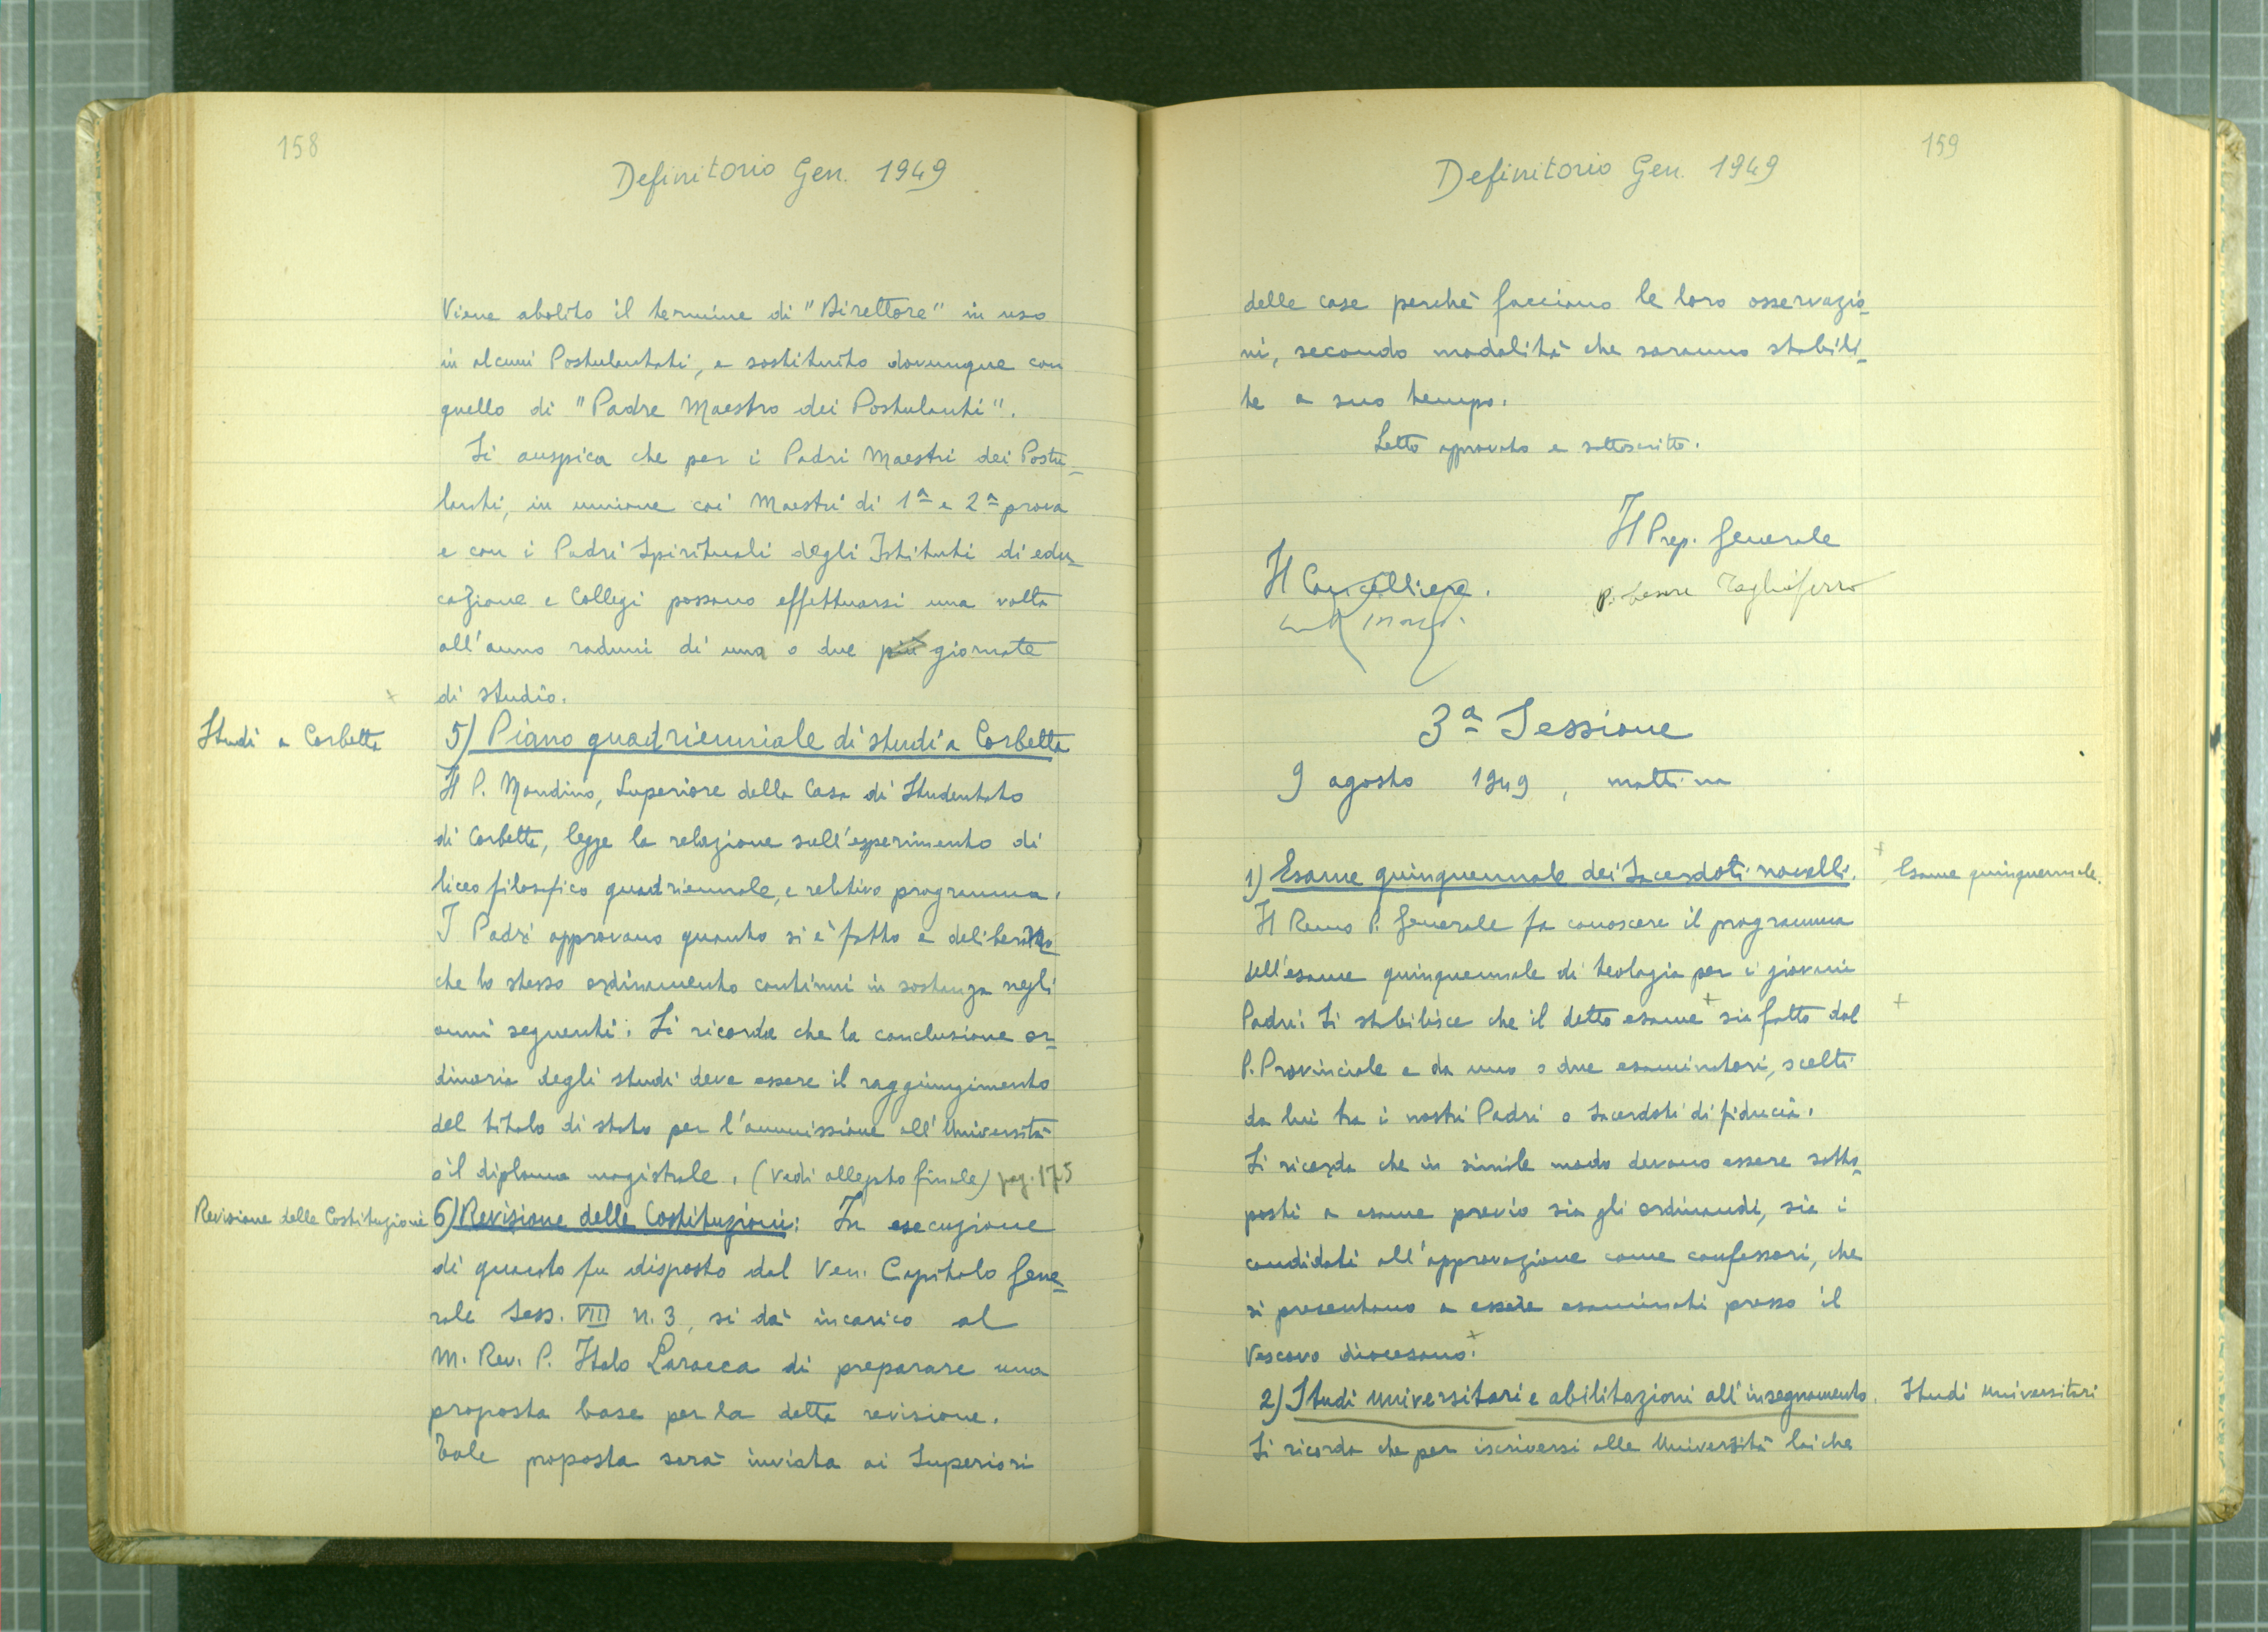 158
Definitorio Gen. 1949
Viene abolito il termine di "Direttore" in uso
in alcuni Postulantati, e sostituito dovunque con
quello di "Padre Maestro dei Postulanti".
Si auspica che per i Padri Maestri dei Postu-
lanti, in unione coi Maestri di 1ª e 2ª prova
e con i Padri Spirituali degli Istituti di edu-
cazione e Collegi possano effettuarsi una volta
all'anno raduni di una o due più giornate
di studio.
Studi a Corbetta
5) Piano quadriennale di studi a Corbetta
Il P. Mondino, Superiore della Casa di Studentato
di Corbetta, legge la relazione sull'esperimento di
liceo filosofico quadriennale, e relativo programma.
I Padri approvano quanto si è fatto e deliberano
che lo stesso ordinamento continui in sostanza negli
anni seguenti. Si ricorda che la conclusione or-
dinaria degli studi deve essere il raggiungimento
del titolo di stato per l'ammissione all'Università
o il diploma magistrale. (Vedi allegato finale) pag. 175
Revisione delle Costituzioni
6) Revisione delle Costituzioni: In esecuzione
di quanto fu disposto dal Ven. Capitolo Gene-
rale Sess. VIII n. 3, si dà incarico al
M. Rev. P. Italo Laracca di preparare una
proposta base per la detta revisione.
Tale proposta sarà inviata ai Superiori
159
Definitorio Gen. 1949
delle case perchè facciano le loro osservazio-
ni, secondo modalità che saranno stabili-
te a suo tempo.
Letto approvato e sottoscritto.
Il Prep. Generale
P. Cesare Tagliaferro
Il Cancelliere.
3ª Sessione
9 agosto 1949, mattina
1) Esame quinquennale dei Sacerdoti novelli.
Esame quinquennale.
Il Rev.mo P. Generale fa conoscere il programma
dell'esame quinquennale di teologia per i giovani
Padri. Si stabilisce che il detto esame sia fatto dal
P. Provinciale e da uno o due esaminatori, scelti
da lui tra i nostri Padri o Sacerdoti di fiducia.
Si ricorda che in simile modo devono essere sotto-
posti a esame previo sia gli ordinandi, sia i
candidati all'approvazione come confessori, che
si presentano a essere esaminati presso il
Vescovo diocesano.
2) Studi universitari e abilitazioni all'insegnamento.
Studi Universitari
Si ricorda che per iscriversi alle Università laiche